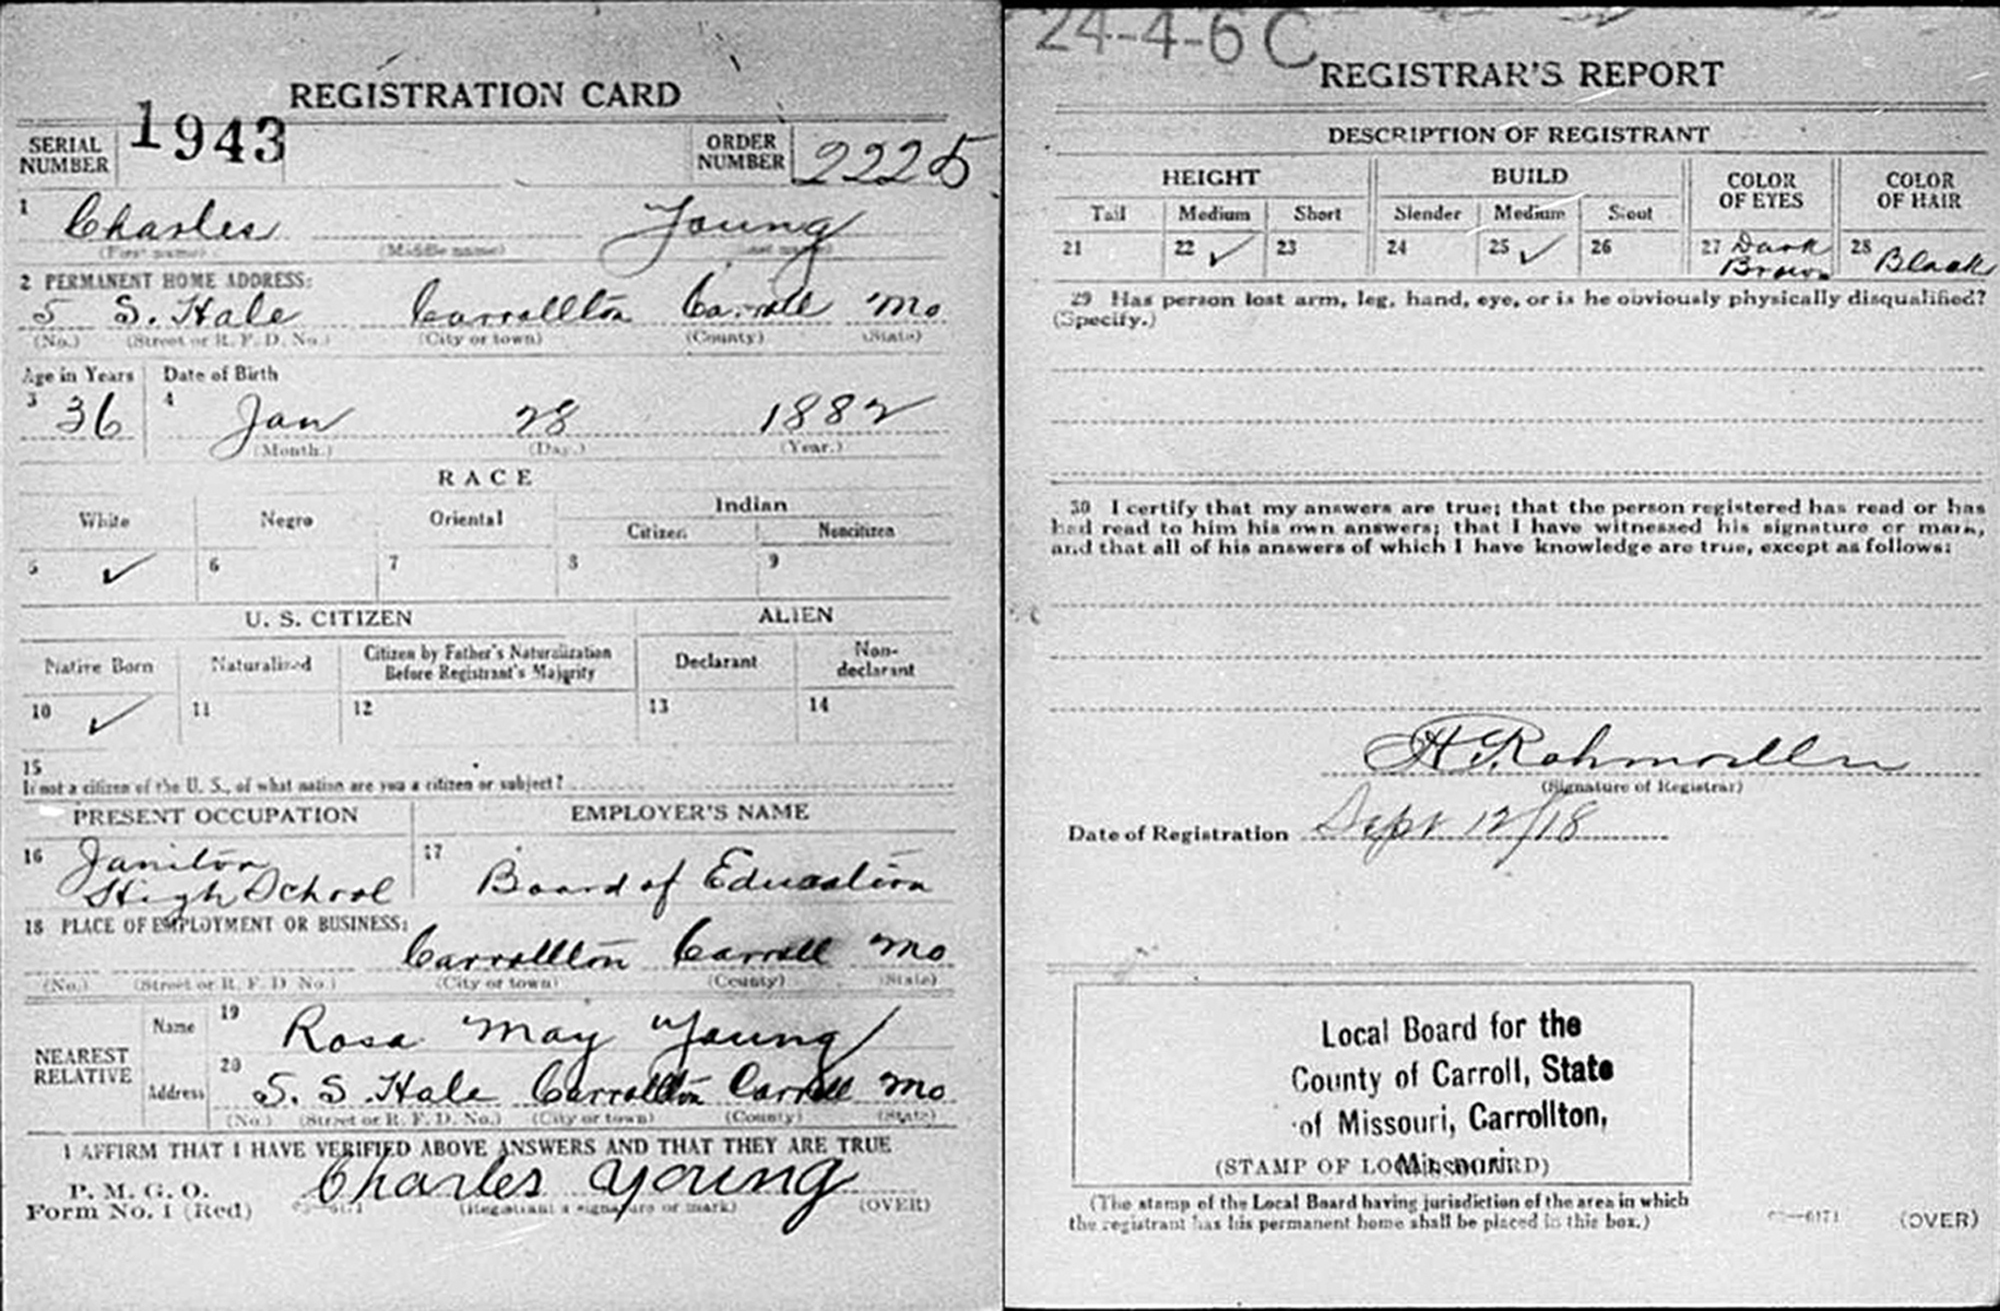 REGISTRATION CARD
SERIAL NUMBER 1943 ORDER NUMBER 2225
1 Charles Young
(First name) (Middle name) (Last name)
2 PERMANENT HOME ADDRESS:
5 S. Hale Carrollton Carroll Mo
(No.) (Street or R. F. D. No.) (City or town) (County) (State)
Age in Years Date of Birth
3 36 4 Jan 28 1882
(Month.) (Day.) (Year.)
RACE
White Negro Oriental Indian
Citizen Noncitizen
5 ✓ 6 7 8 9
U. S. CITIZEN ALIEN
Native Born Naturalized Citizen by Father's Naturalization Before Registrant's Majority Declarant Non-declarant
10 ✓ 11 12 13 14
15
If not a citizen of the U. S., of what nation are you a citizen or subject?
PRESENT OCCUPATION EMPLOYER'S NAME
16 Janitor High School 17 Board of Education
18 PLACE OF EMPLOYMENT OR BUSINESS:
Carrollton Carroll Mo
(No.) (Street or R. F. D. No.) (City or town) (County) (State)
NEAREST RELATIVE
Name 19 Rosa May Young
Address 20 S. S. Hale Carrollton Carroll Mo
(No.) (Street or R. F. D. No.) (City or town) (County) (State)
I AFFIRM THAT I HAVE VERIFIED ABOVE ANSWERS AND THAT THEY ARE TRUE
P. M. G. O.
Form No. 1 (Red) Charles Young
(Registrant's signature or mark) (OVER)
24-4-6 C
REGISTRAR'S REPORT
DESCRIPTION OF REGISTRANT
HEIGHT BUILD COLOR OF EYES COLOR OF HAIR
Tall Medium Short Slender Medium Stout
21 22 ✓ 23 24 25 ✓ 26 27 Dark Brown 28 Black
29 Has person lost arm, leg, hand, eye, or is he obviously physically disqualified?
(Specify.)
30 I certify that my answers are true; that the person registered has read or has
had read to him his own answers; that I have witnessed his signature or mark,
and that all of his answers of which I have knowledge are true, except as follows:
(Signature of Registrar)
Date of Registration Sept 12/18
Local Board for the
County of Carroll, State
of Missouri, Carrollton,
Missouri
(STAMP OF LOCAL BOARD)
(The stamp of the Local Board having jurisdiction of the area in which
the registrant has his permanent home shall be placed in this box.)
(OVER)